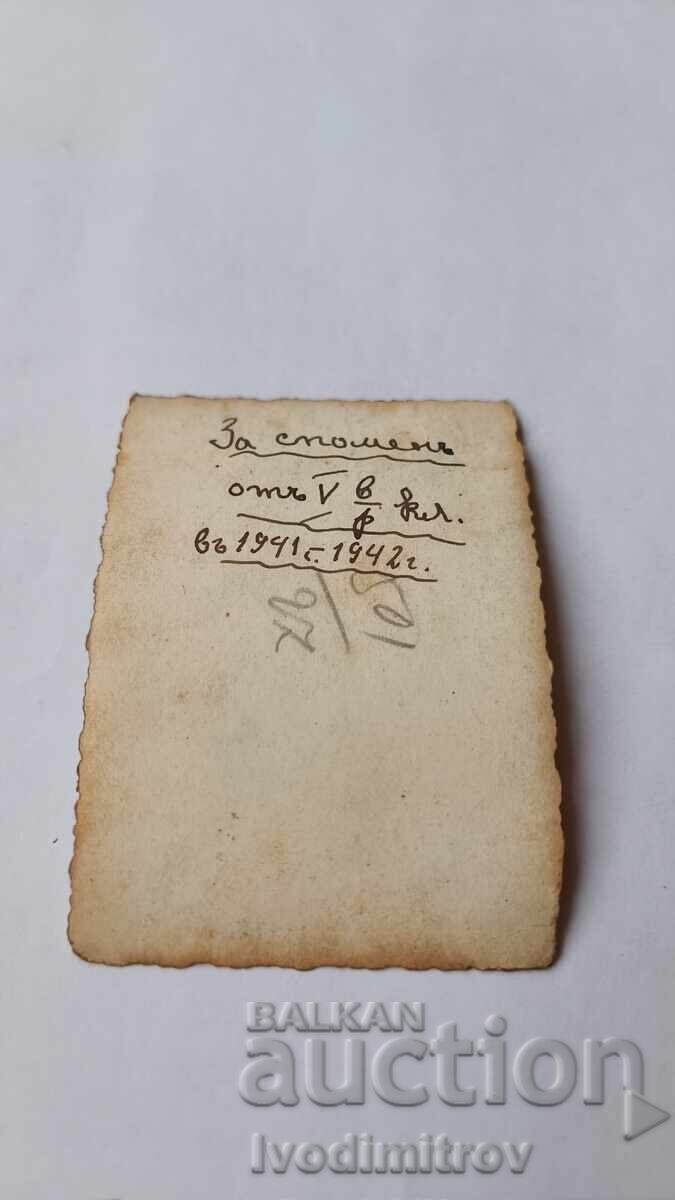 За споменъ
отъ V в/р кл.
въ 1941 г. 1942 г.
BALKAN
auction
Ivodimitrov